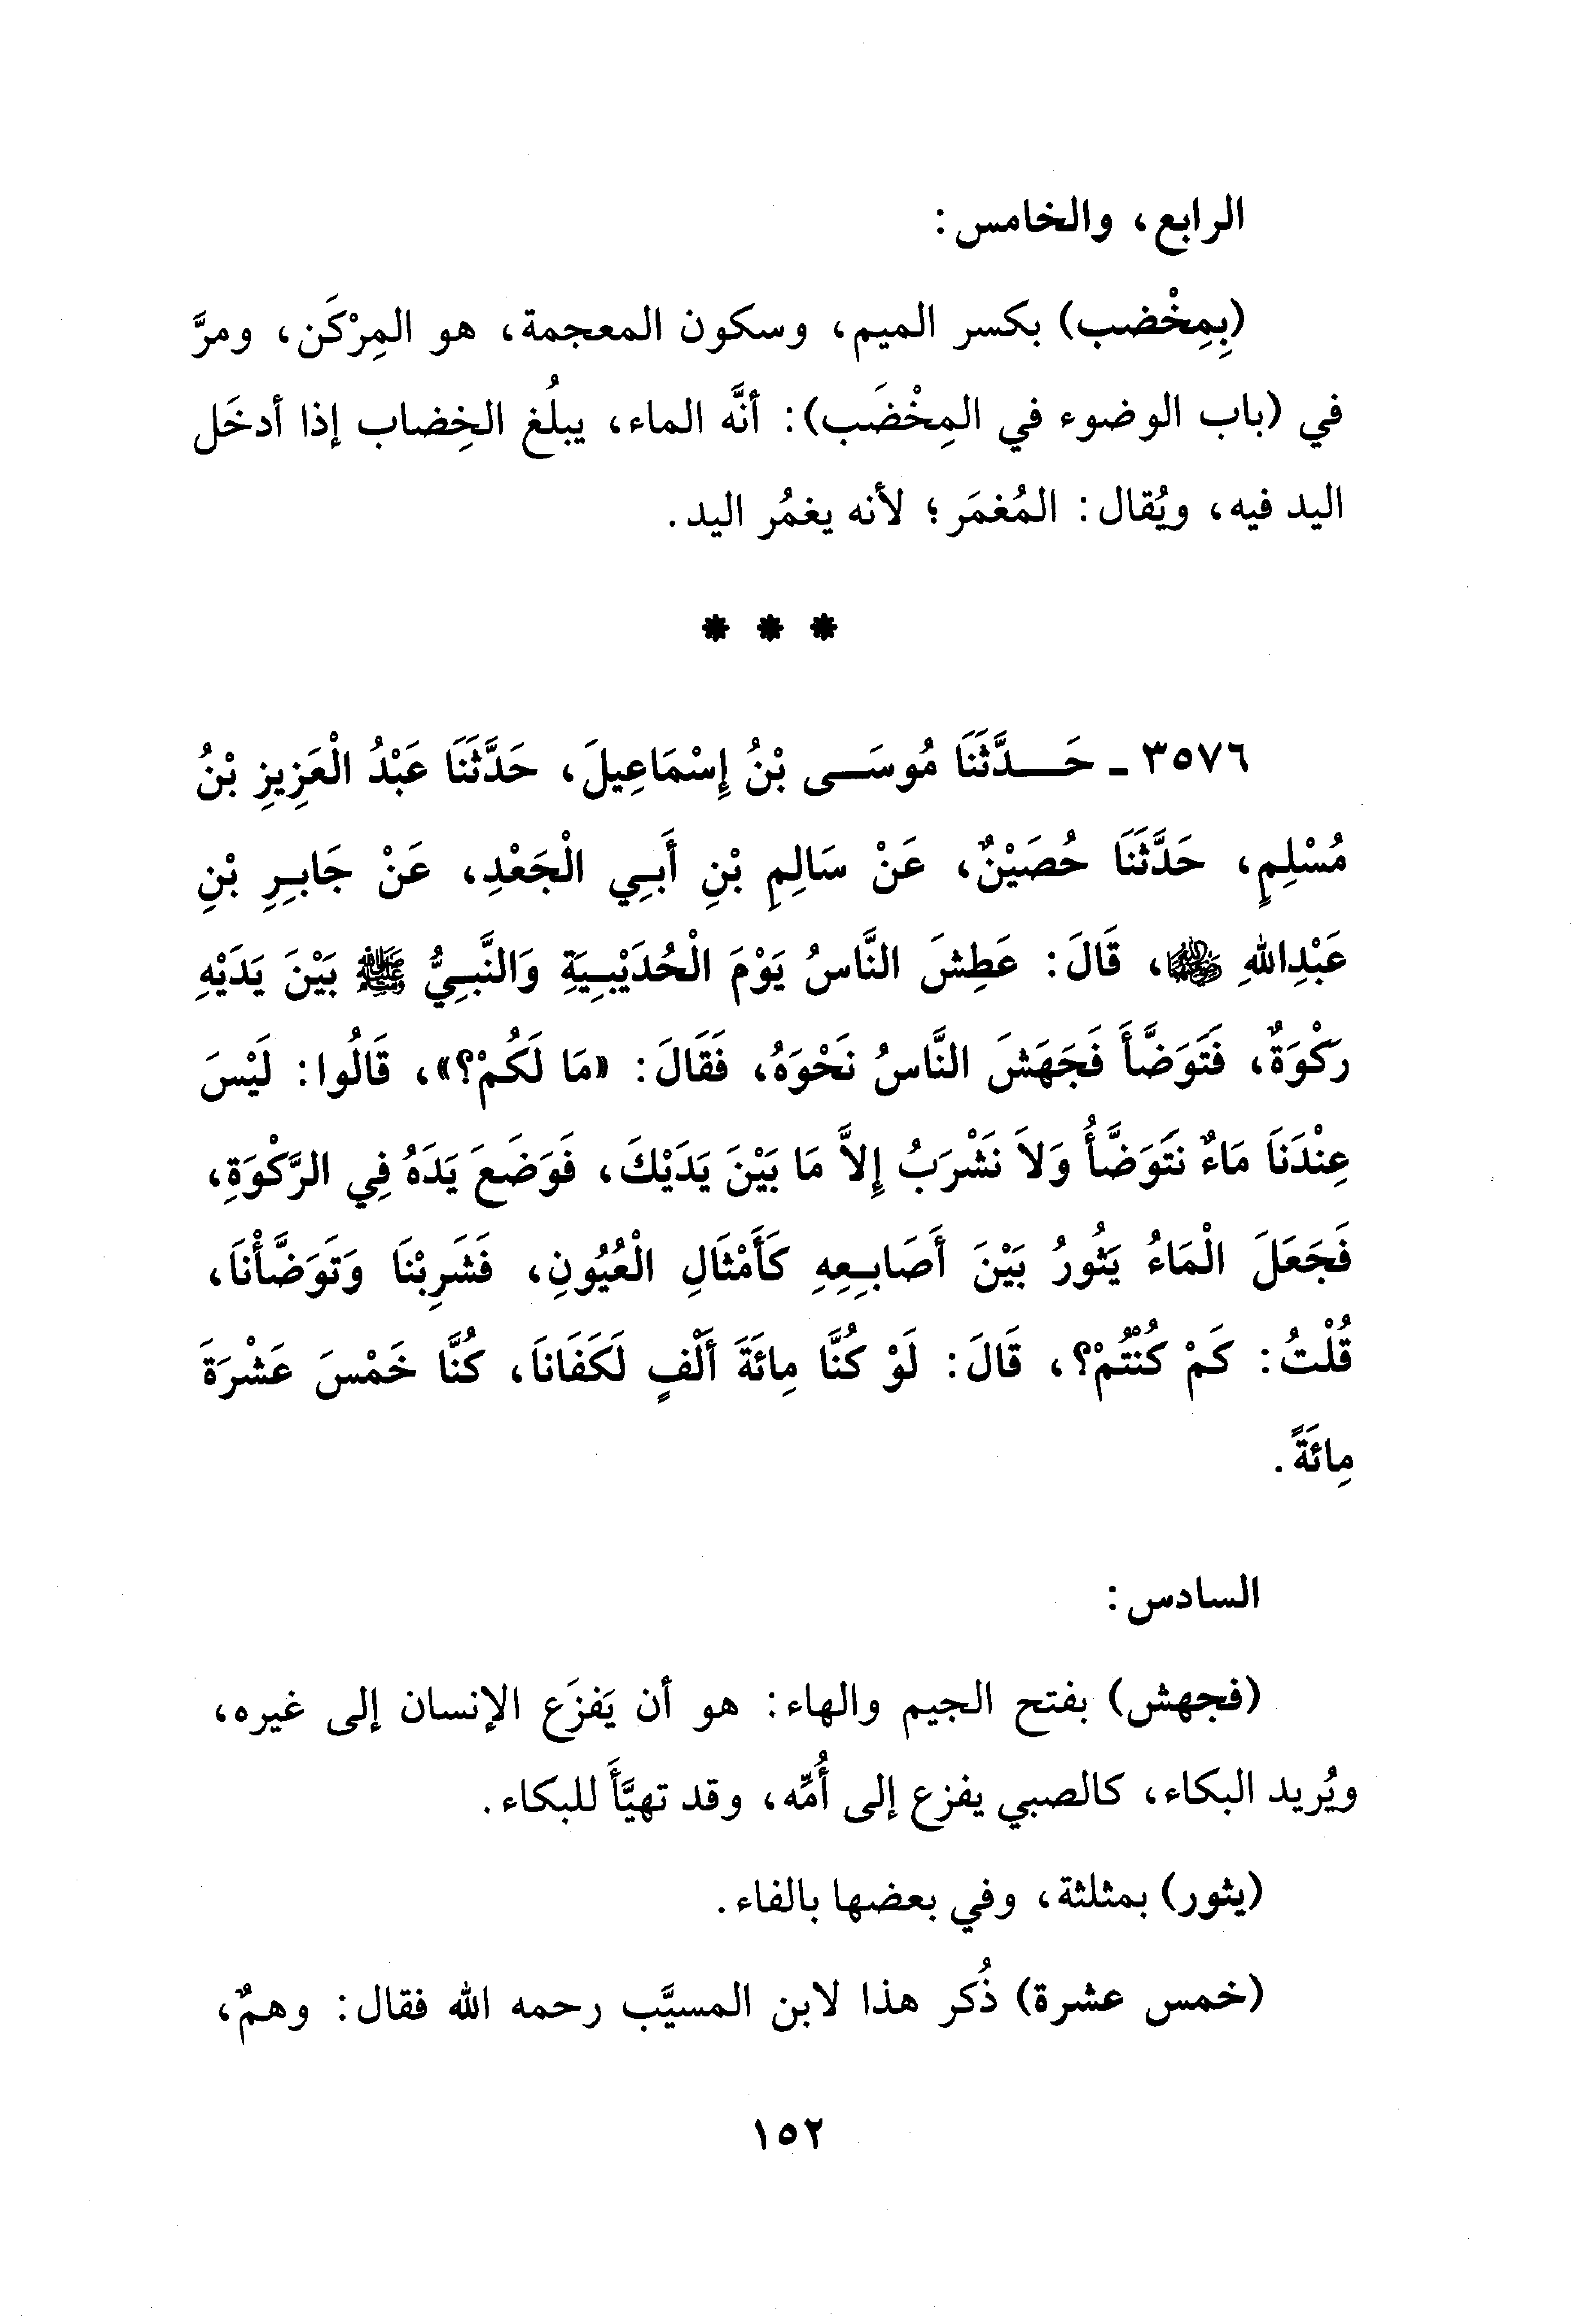 الرابع، والخامس:
(بِمِخْضب) بكسر الميم، وسكون المعجمة، هو المِرْكَن، ومرَّ
في (باب الوضوء في المِخْضَب): أنَّه الماء، يبلُغ الخِضاب إذا أدخَل
اليد فيه، ويُقال: المُغمَر؛ لأنه يغمُر اليد.
* * *
٣٥٧٦ - حَـدَّثَنَا مُوسَـى بْنُ إِسْمَاعِيلَ، حَدَّثَنَا عَبْدُ الْعَزِيزِ بْنُ
مُسْلِمٍ، حَدَّثَنَا حُصَيْنٌ، عَنْ سَالِمِ بْنِ أَبِي الْجَعْدِ، عَنْ جَابِرِ بْنِ
عَبْدِاللهِ ﵁، قَالَ: عَطِشَ النَّاسُ يَوْمَ الْحُدَيْبِيَةِ وَالنَّبِيُّ ﷺ بَيْنَ يَدَيْهِ
رَكْوَةٌ، فَتَوَضَّأَ فَجَهَشَ النَّاسُ نَحْوَهُ، فَقَالَ: «مَا لَكُمْ؟»، قَالُوا: لَيْسَ
عِنْدَنَا مَاءٌ نَتَوَضَّأُ وَلاَ نَشْرَبُ إِلاَّ مَا بَيْنَ يَدَيْكَ، فَوَضَعَ يَدَهُ فِي الرَّكْوَةِ،
فَجَعَلَ الْمَاءُ يَثُورُ بَيْنَ أَصَابِعِهِ كَأَمْثَالِ الْعُيُونِ، فَشَرِبْنَا وَتَوَضَّأْنَا،
قُلْتُ: كَمْ كُنْتُمْ؟، قَالَ: لَوْ كُنَّا مِائَةَ أَلْفٍ لَكَفَانَا، كُنَّا خَمْسَ عَشْرَةَ
مِائَةً.
السادس:
(فجهش) بفتح الجيم والهاء: هو أن يَفزَع الإنسان إلى غيره،
ويُريد البكاء، كالصبي يفزع إلى أُمِّه، وقد تهيَّأَ للبكاء.
(يثور) بمثلثة، وفي بعضها بالفاء.
(خمس عشرة) ذُكر هذا لابن المسيَّب رحمه الله فقال: وهمٌ،
١٥٢